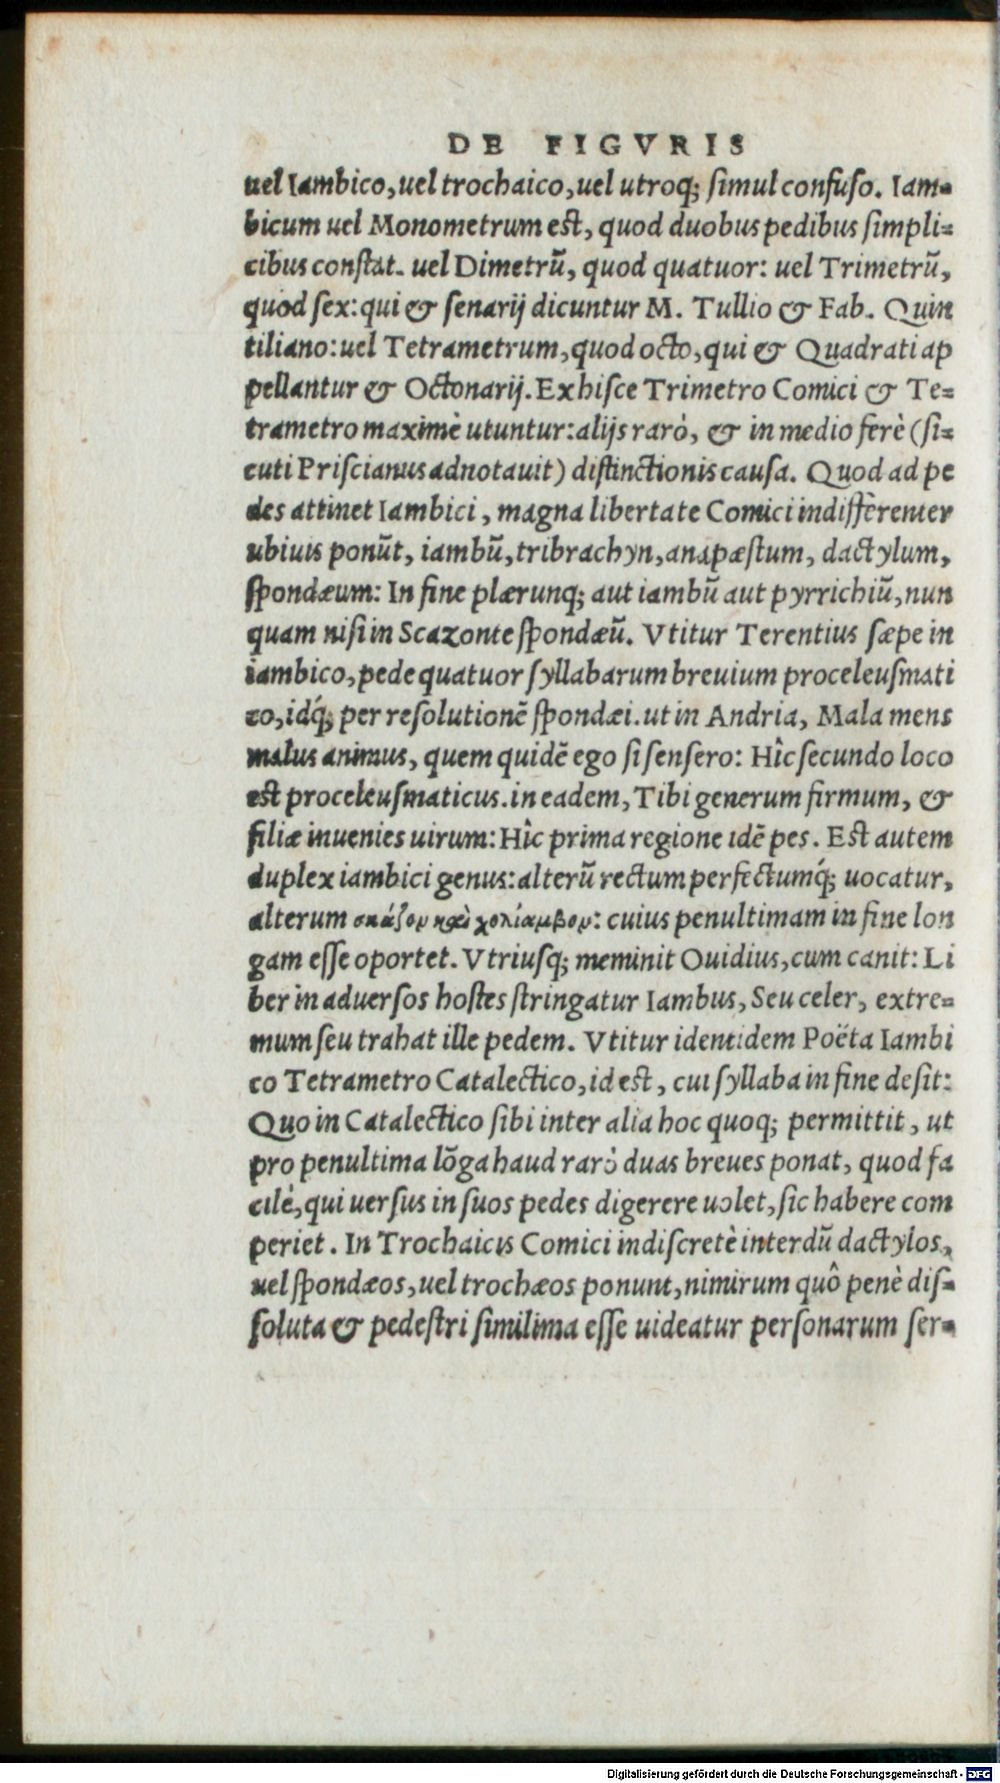 DE FIGVRIS
uel Iambico, uel trochaico, uel utroq; simul confuso. Iam-
bicum uel Monometrum est, quod duobus pedibus simpli-
cibus constat. uel Dimetrũ, quod quatuor: uel Trimetrũ,
quod sex: qui & senarij dicuntur M. Tullio & Fab. Quin
tiliano: uel Tetrametrum, quod octo, qui & Quadrati ap
pellantur & Octonarij. Ex hisce Trimetro Comici & Te-
trametro maximè utuntur: alijs rarò, & in medio ferè (si-
cuti Priscianus adnotauit) distinctionis causa. Quod ad pe
des attinet Iambici, magna libertate Comici indifferenter
ubiuis ponũt, iambũ, tribrachyn, anapæstum, dactylum,
spondæum: In fine plærunq; aut iambũ aut pyrrichiũ, nun
quam nisi in Scazonte spondæũ. Vtitur Terentius sæpe in
iambico, pede quatuor syllabarum breuium proceleusmati
co, idq́; per resolutionẽ spondæi. ut in Andria, Mala mens
malus animus, quem quidẽ ego si sensero: Hîc secundo loco
est proceleusmaticus. in eadem, Tibi generum firmum, &
filiæ inuenies uirum: Hîc prima regione idẽ pes. Est autem
duplex iambici genus: alterũ rectum perfectumq́; uocatur,
alterum σκάζον καὶ χολίαμβον: cuius penultimam in fine lon
gam esse oportet. Vtriusq; meminit Ouidius, cum canit: Li
ber in aduersos hostes stringatur Iambus, Seu celer, extre-
mum seu trahat ille pedem. Vtitur identidem Poëta Iambi
co Tetrametro Catalectico, id est, cui syllaba in fine desit:
Quo in Catalectico sibi inter alia hoc quoq; permittit, ut
pro penultima lõga haud rarò duas breues ponat, quod fa
cilè, qui uersus in suos pedes digerere uolet, sic habere com
periet. In Trochaicis Comici indiscretè interdũ dactylos,
uel spondæos, uel trochæos ponunt, nimirum quô penè dis-
soluta & pedestri similima esse uideatur personarum ser-
Digitalisierung gefördert durch die Deutsche Forschungsgemeinschaft - DFG